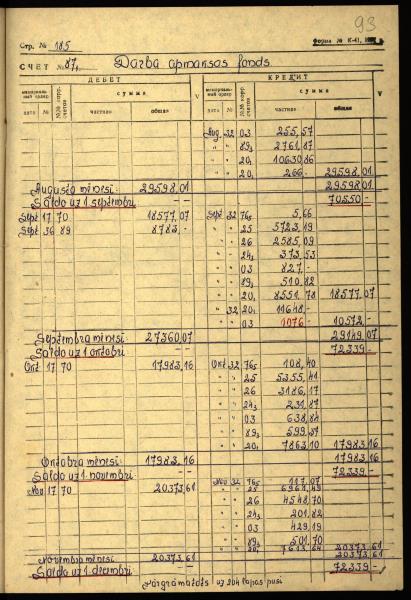 93
Стр. № 185
Форма № К-41,
СЧЕТ № 87, Darba apmaksas fonds
ДЕБЕТ КРЕДИТ
мемориальный ордер №№ корр. счетов сумма V мемориальный ордер №№ корр. счетов сумма V
дата № частная общая дата № частная общая
Aug. 32 03 255,57
" " 89₃ 2761,87
" " 20₁ 10630,86
" " 20₁ 266.- 29598,01
Augusta mēnesi: 29598.01 29598.01
Saldo uz 1 septembri -- 70550.-
Sept 17 70 18577.07 Sept 32 76₅ 5,66
Sept 36 89 8783.- " " 25 5723,19
" " 26 2585,09
" " 24₃ 373,53
" " 03 827.-
" " 89₃ 510,82
" " 20₁ 8551.78 18577,07
" 32 20₁ 11648.-
" " 03 1076.- 10572.-
Septembra mēnesi: 27360,07 29149.07
Saldo uz 1 oktobri -- 72339.-
Okt 17 70 17983,16 Okt. 32 76₅ 108,40
" " 25 5355,41
" " 26 3186,17
" " 24₃ 231,87
" " 03 638,84
" " 89₃ 599,37
" " 20₁ 7863,10 17983,16
Oktobra mēnesi: 17983,16 17983,16
Saldo uz 1 novembri -- 72339.-
Nov 17 70 20373,61 Nov 32 76₅ 117,07
" " 25 6961,49
" " 26 4548,70
" " 24₃ 201,82
" " 03 429,19
" " 89₃ 501,70
" " 20₁ 7613,64 20373,61
Novembra mēnesi: 20373,61 20373,61
Saldo uz 1 decembri -- 72339.-
Pārgrāmatots uz 204 lapas pusi